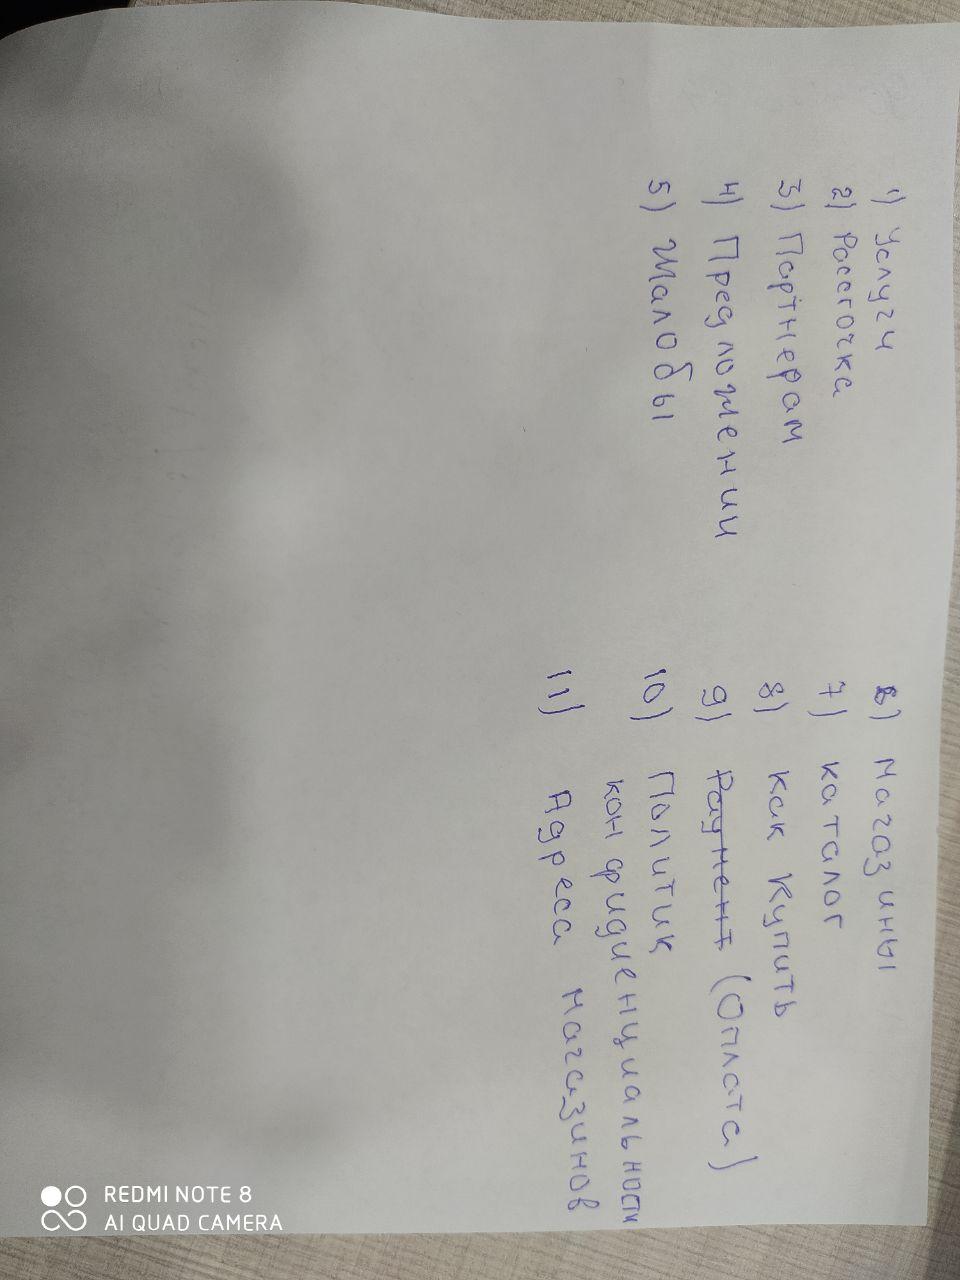 1) Услуги
2) Рассгочка
3) Партнерам
4) Предложении
5) Жалобы
6) Магазины
7) каталог
8) как купить
9) Раумент (Оплата)
10) Политик
конфидиенциальности
11) Адреса магазинов
REDMI NOTE 8
AI QUAD CAMERA